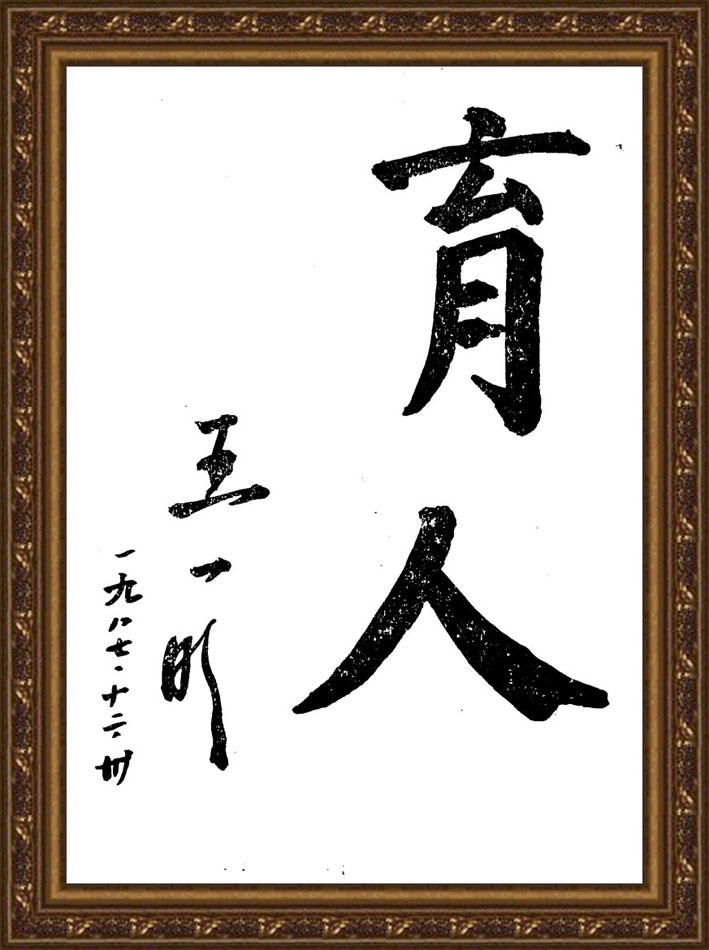 育人
王一
一九八七·十二·卅